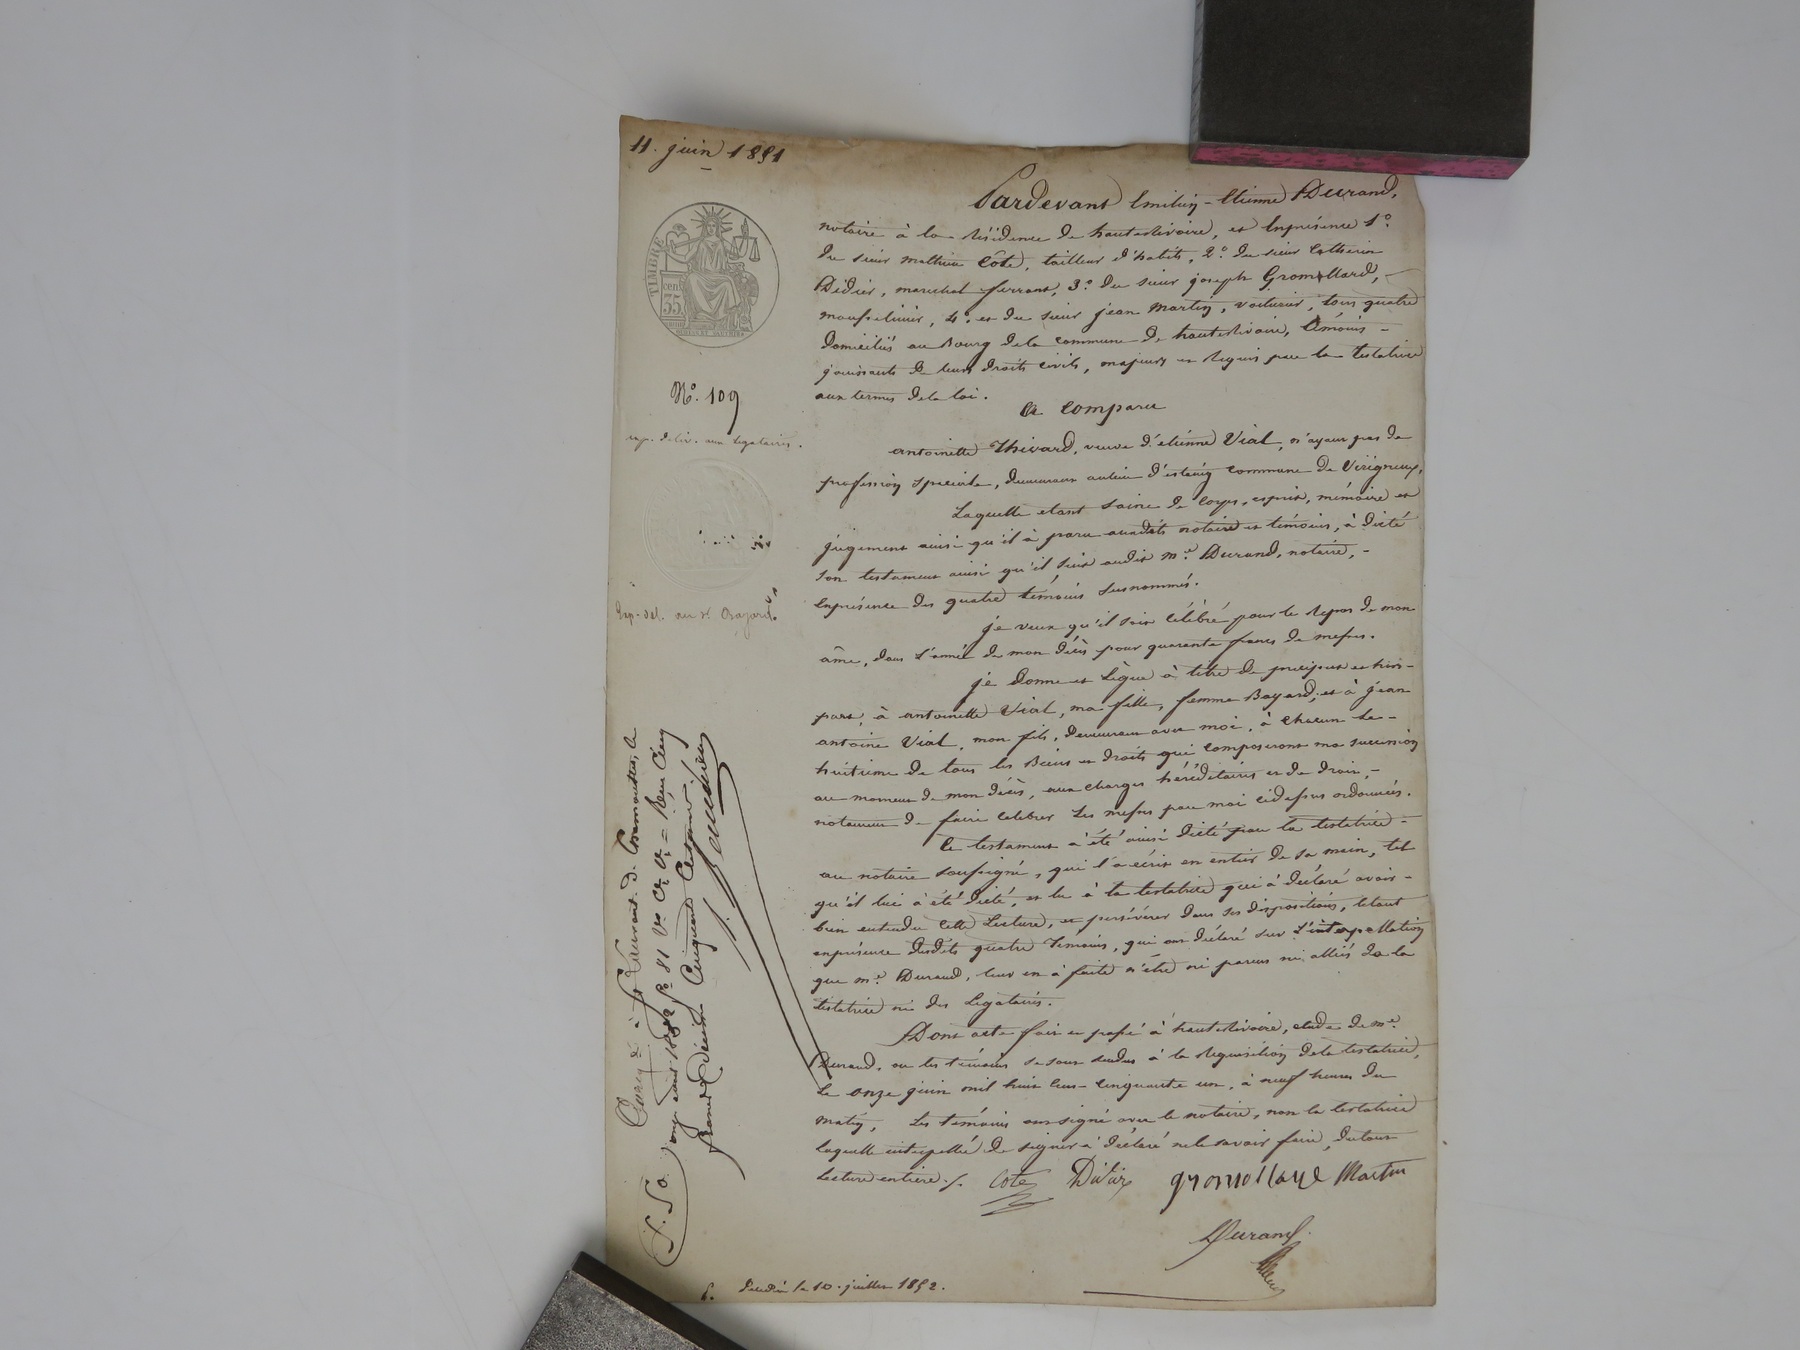 11. juin 1851
Pardevant Emilien-Etienne Durand,
notaire à la Résidence de hauterivoire, et Enprésence 1°.
du sieur mathieu Côte, tailleur d'habits, 2°. du sieur Catherin
Didier, marechal ferrant, 3°. du sieur joseph Gromollard,
mousselinier, 4°. et du sieur jean Martin, voiturier, tous quatre
domiciliés au Bourg dela commune de hauterivoire, témoins
jouissants de leurs droits civils, majeurs et Requis par la testatrice
aux termes dela loi.
a comparu
antoinette Thivard, veuve d'etienne Vial, n'ayant pas de
profession speciale, demeurant au lieu d'estaing commune de Virigneux,
Laquelle etant saine de Corps, esprit, mémoire et
jugement ainsi qu'il à paru auxdits notaire et témoins, à dicté
son testament ainsi qu'il suit audit me. Durand, notaire, -
Enprésence des quatre témoins susnommés.
je veux qu'il soit célébré pour le Repos de mon
âme, dans l'année de mon décès pour quarante francs de messes.
je donne et Lègue à titre de preciput et hors-
part, à antoinette Vial, ma fille, femme Bayard, et à jean
antoine Vial, mon fils, demeurant avec moi, à chacun le -
huitieme de tous les Biens et droits qui composeront ma succession
au moment de mon décès, aux charges héréditaires et de droit, -
notamment de faire celebrer les messes par moi cidessus ordonnées.
Ce testament a été ainsi dicté par la testatrice -
au notaire soussigné, qui l'a ecrit en entier de sa main, tel
qu'il lui à été dicté, et lu à la testatrice qui à déclaré avoir -
bien entendu cette Lecture, et persévérer dans ses dispositions, letout
enprésence desdits quatre temoins, qui ont déclaré sur l'interpellation
que me. Durand, leur en à faite n'être ni parens ni alliés de la
testatrice ni des Legataires.
Dont acte fait et passé à hauterivoire, etude de me.
Durand, ou les témoins se sont rendus à la Requisition dela testatrice,
le onze juin mil huit cent-cinquante un, à neuf heures du
matin, Les témoins ont signé avec le notaire, non la testatrice
laquelle interpellée de signer à déclaré nele savoir faire, dutout
Lecture entière ./.
Cote Didier gromollard Martin
Durand
TIMBRE
35 cent
N°. 109
exp. deliv. aux Legataires.
Exp. del. au sr Bayard.
Enreg.é à St Laurent d. Chamousset, le
août 1852 f° 81 v°
francs Décime Cinquante Centimes
5. 50
Déudin le 10. juillet 1852.